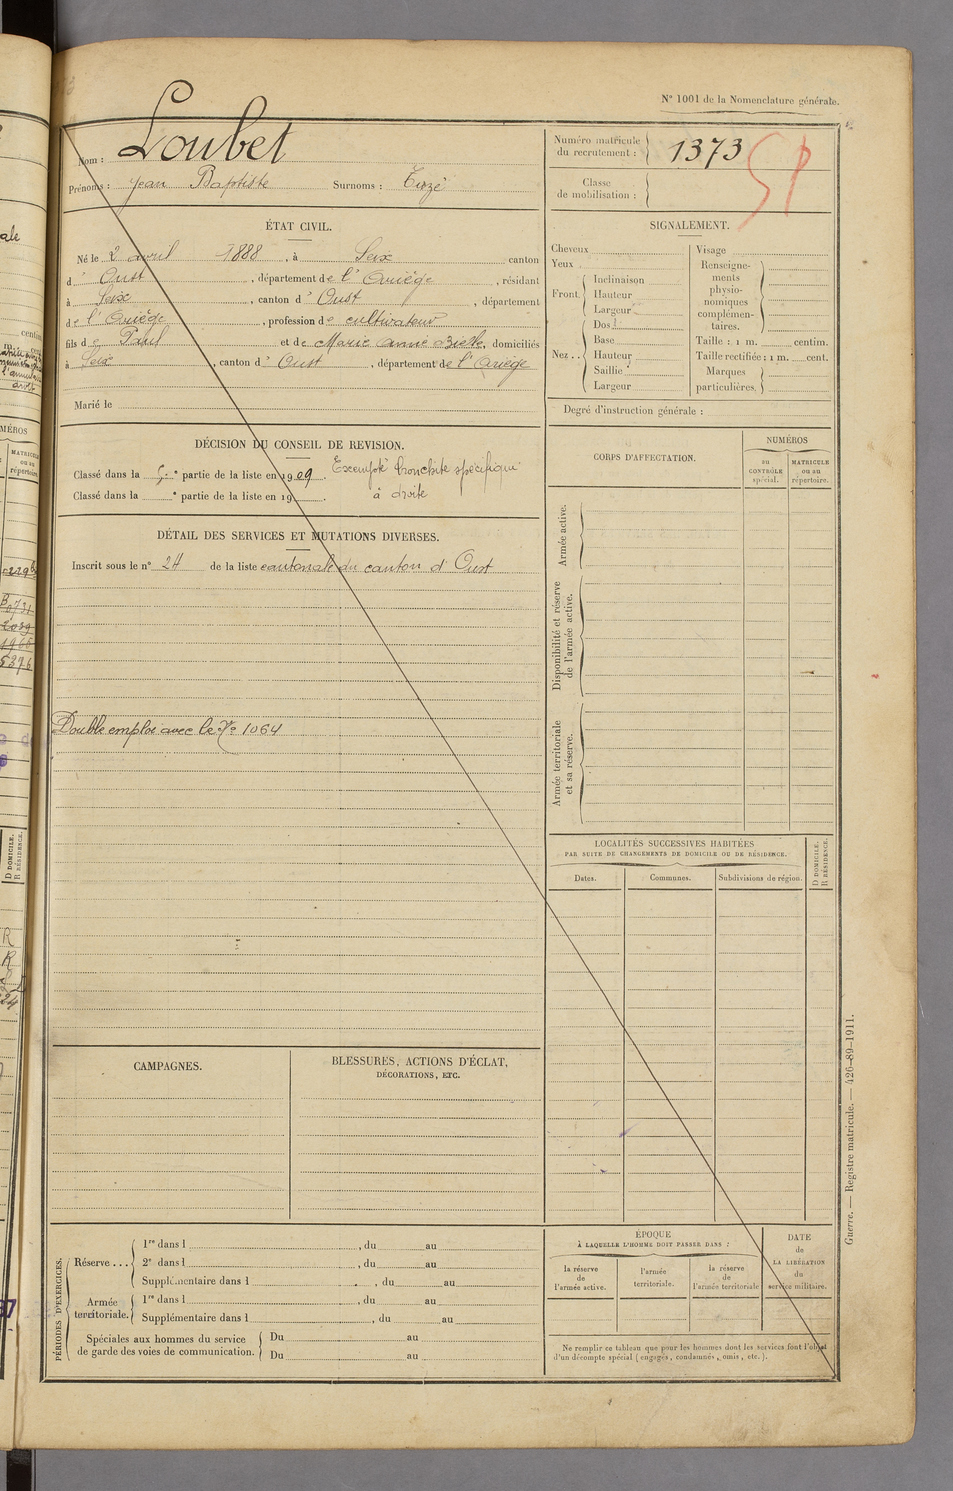 N° 1001 de la Nomenclature générale.
Nom : Loubet
Prénoms : Jean Baptiste Surnoms :
Numéro matricule du recrutement : 1373
Classe de mobilisation :
ÉTAT CIVIL.
Né le 2 avril 1888, à Seix canton
d' Oust, département de l'Ariège, résidant
à Seix, canton d' Oust, département
de l'Ariège, profession de cultivateur
fils de Paul et de Marie Anne, domiciliés
à Seix, canton d' Oust, département de l'Ariège
Marié le
SIGNALEMENT.
Cheveux
Yeux
Front. Inclinaison
Hauteur
Largeur
Nez. Dos
Base
Hauteur
Saillie
Largeur
Visage
Renseignements physionomiques complémentaires.
Taille : 1 m. centim.
Taille rectifiée : 1 m. cent.
Marques particulières.
Degré d'instruction générale :
DÉCISION DU CONSEIL DE REVISION.
Classé dans la 5e partie de la liste en 1909. Exempté bronchite spécifique
Classé dans la e partie de la liste en 19 . à droite
DÉTAIL DES SERVICES ET MUTATIONS DIVERSES.
Inscrit sous le n° 24 de la liste cantonale du canton d'Oust
Double emploi avec le N° 1064
CORPS D'AFFECTATION.
NUMÉROS
au CONTRÔLE spécial.
MATRICULE ou au répertoire.
Armée active.
Disponibilité et réserve de l'armée active.
Armée territoriale et sa réserve.
LOCALITÉS SUCCESSIVES HABITÉES
PAR SUITE DE CHANGEMENTS DE DOMICILE OU DE RÉSIDENCE.
Dates.
Communes.
Subdivisions de région.
D DOMICILE.
R RÉSIDENCE.
CAMPAGNES.
BLESSURES, ACTIONS D'ÉCLAT,
DÉCORATIONS, ETC.
PÉRIODES D'EXERCICES.
Réserve ... 1re dans l , du au
2e dans l , du au
Supplémentaire dans l , du au
Armée territoriale. 1re dans l , du au
Supplémentaire dans l , du au
Spéciales aux hommes du service de garde des voies de communication. Du au
Du au
ÉPOQUE
À LAQUELLE L'HOMME DOIT PASSER DANS :
la réserve de l'armée active.
l'armée territoriale.
la réserve de l'armée territoriale
DATE de LA LIBÉRATION du service militaire.
Ne remplir ce tableau que pour les hommes dont les services font l'objet
d'un décompte spécial (engagés, condamnés, omis, etc.).
Guerre. — Registre matricule. — 426-89-1911.